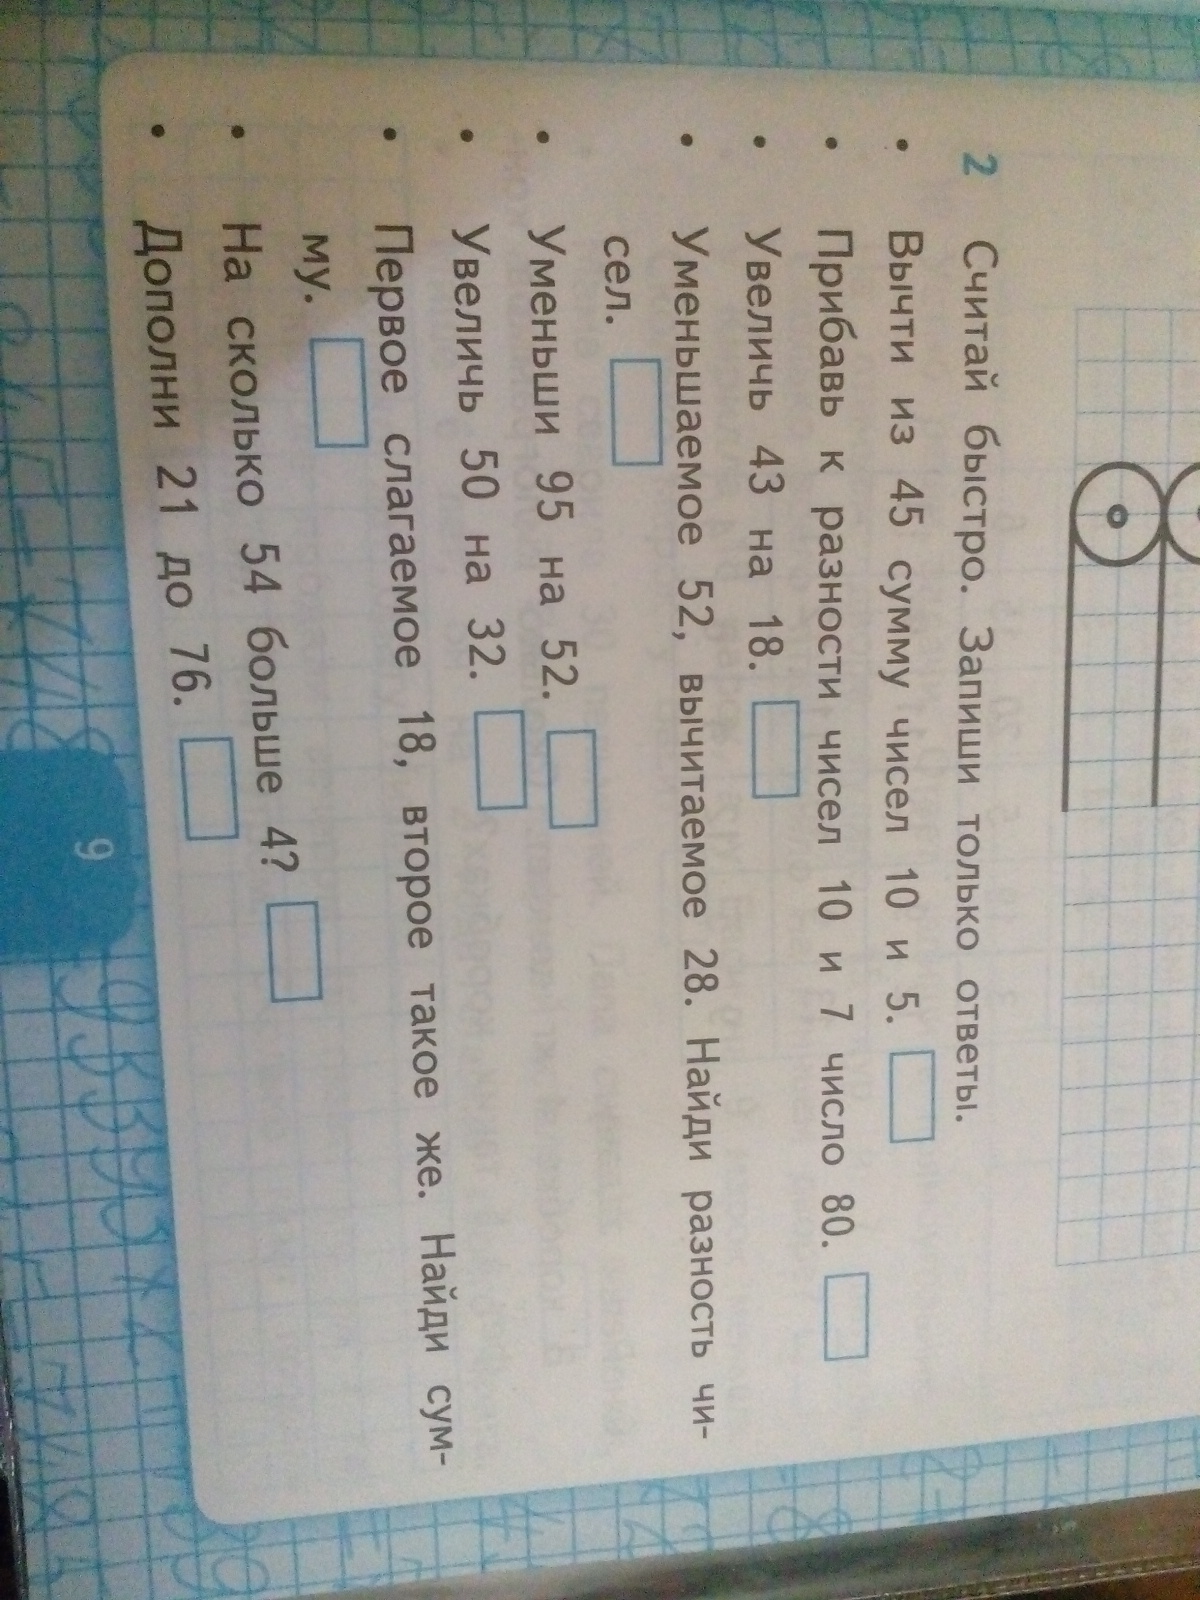 2 Считай быстро. Запиши только ответы.
• Вычти из 45 сумму чисел 10 и 5.
• Прибавь к разности чисел 10 и 7 число 80.
• Увеличь 43 на 18.
• Уменьшаемое 52, вычитаемое 28. Найди разность чи-
сел.
• Уменьши 95 на 52.
• Увеличь 50 на 32.
• Первое слагаемое 18, второе такое же. Найди сум-
му.
• На сколько 54 больше 4?
• Дополни 21 до 76.
9